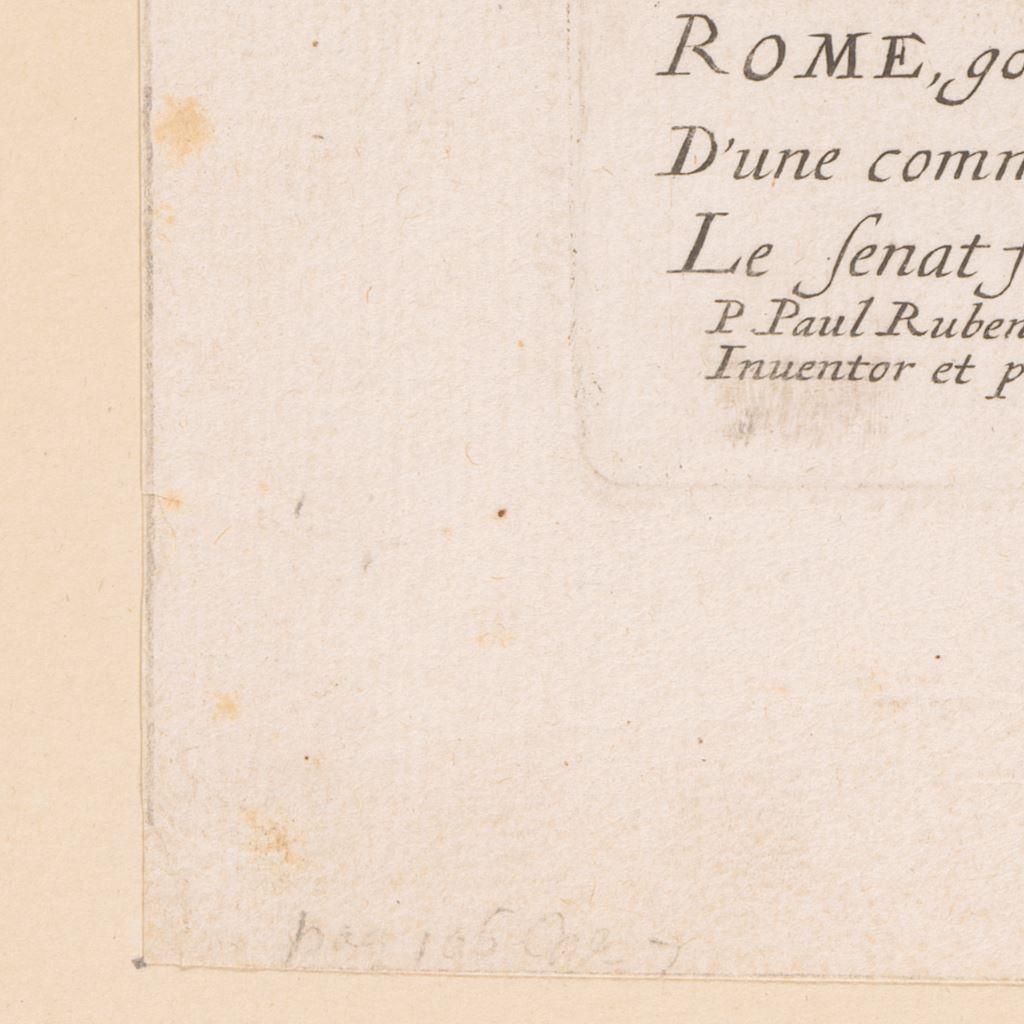 ROME, go
D'une comm
Le ſenat ſ
P. Paul Ruben
Inuentor et p
pag 106